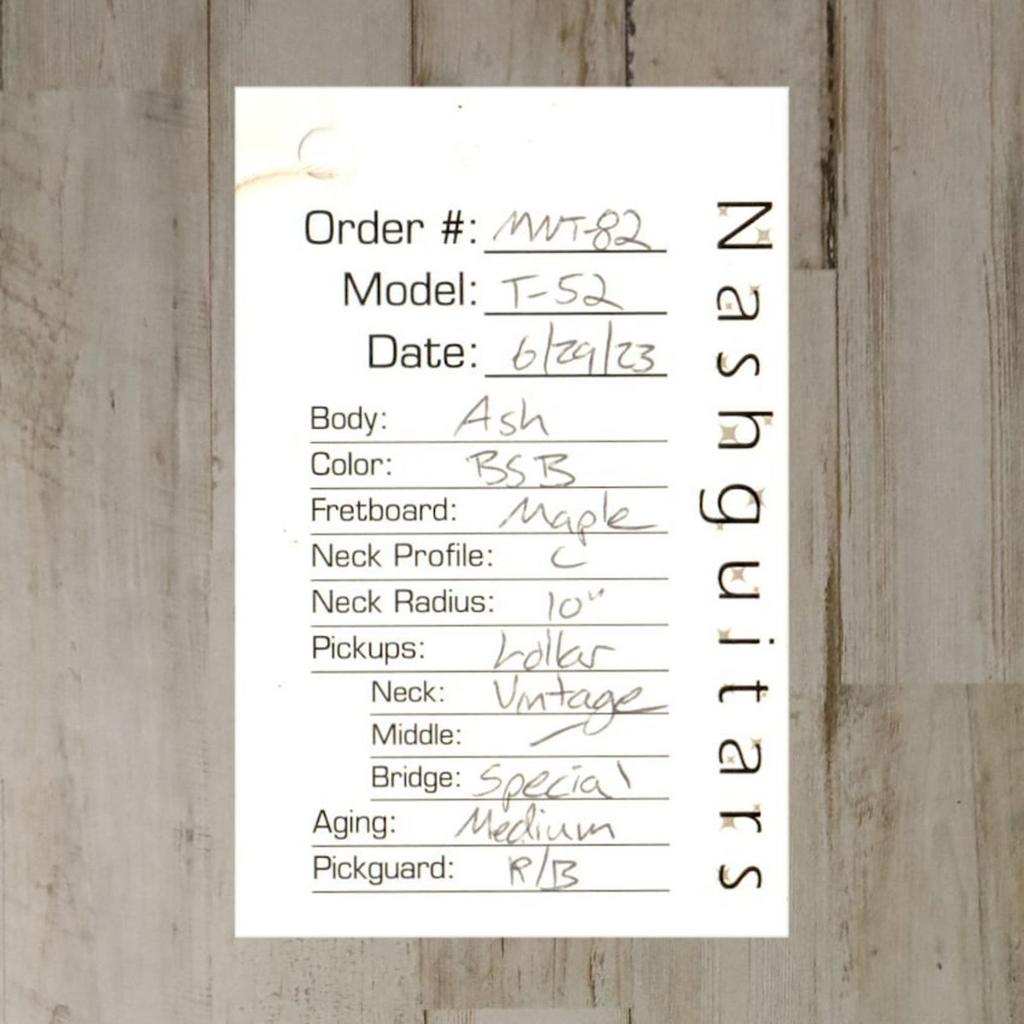 Order #: MWT-82
Model: T-52
Date: 6/29/23
Body: Ash
Color: BSB
Fretboard: Maple
Neck Profile: C
Neck Radius: 10"
Pickups: Lollar
Neck: Vintage
Middle: —
Bridge: Special
Aging: Medium
Pickguard: R/B
Nashguitars